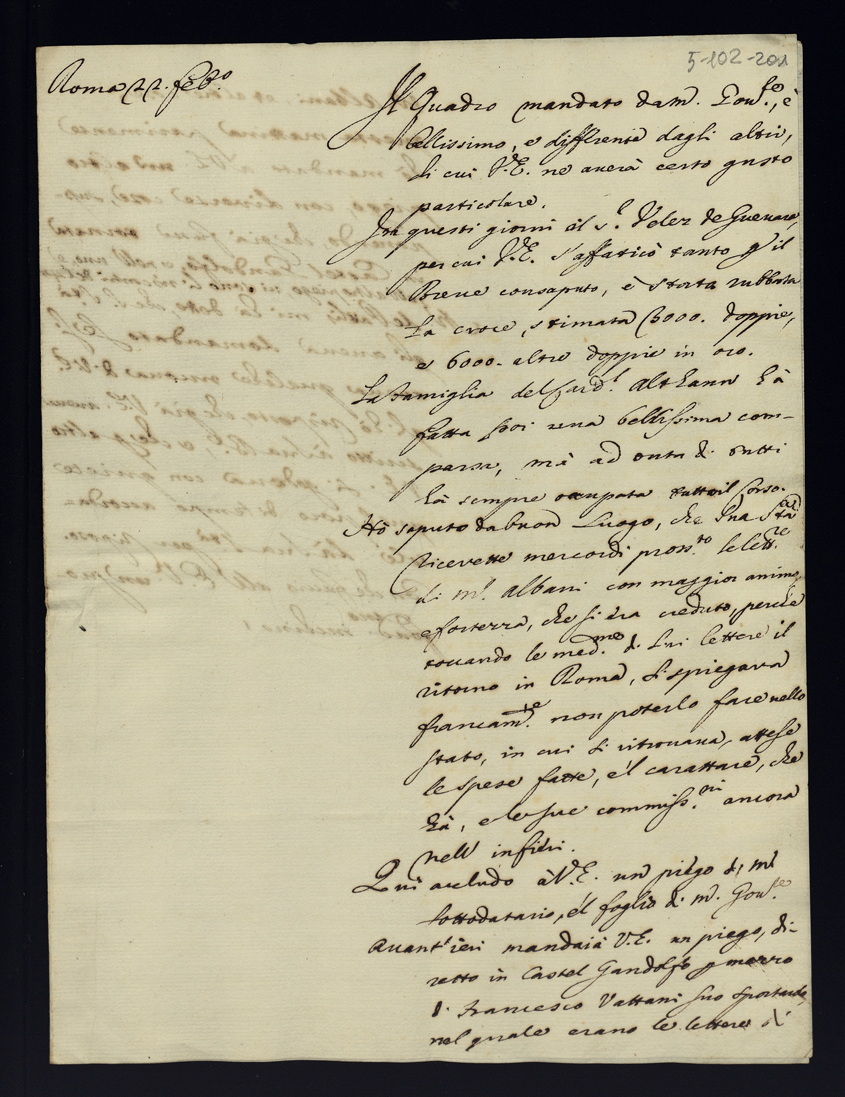 5-102-201
Roma 22. feb.o
Il Quadro mandato da M. Gov.re, è
bellissimo, e differente dagli altri,
di cui V.E. ne averà certo gusto
particolare.
In questi giorni al S.r Velez de Guevara,
per cui V.E. s'affaticò tanto p il
Breve consaputo, è stata rubbata
la croce, stimata 3000. doppie,
e 6000. altre doppie in oro.
La famiglia del Card.l Althann hà
fatta poi una bellissima com-
parsa, mà ad onta di tutti
hà sempre occupata tutto il Corso.
Hò saputo da buon luogo, che Sua S.tà
ricevette mercordì pross.to le lett.re
di M.r Albani con maggior animo,
e fortezza, che si era creduto, perchè
toccando le med.me di lui lettere il
ritorno in Roma, si spiegava
francam.te non poterlo fare nello
stato, in cui si ritrovava, attese
le spese fatte, e'l carattere, che
hà, e le sue commiss.ni ancora
nell' infieri.
Qui accludo à V.E. un piego di M.r
Sottodatario, e'l foglio di M. Gov.re
Avant'ieri mandai à V.E. un piego, di-
retto in Castel Gandolfo p mezzo
di Francesco Vattani suo
nel quale erano le lettere di